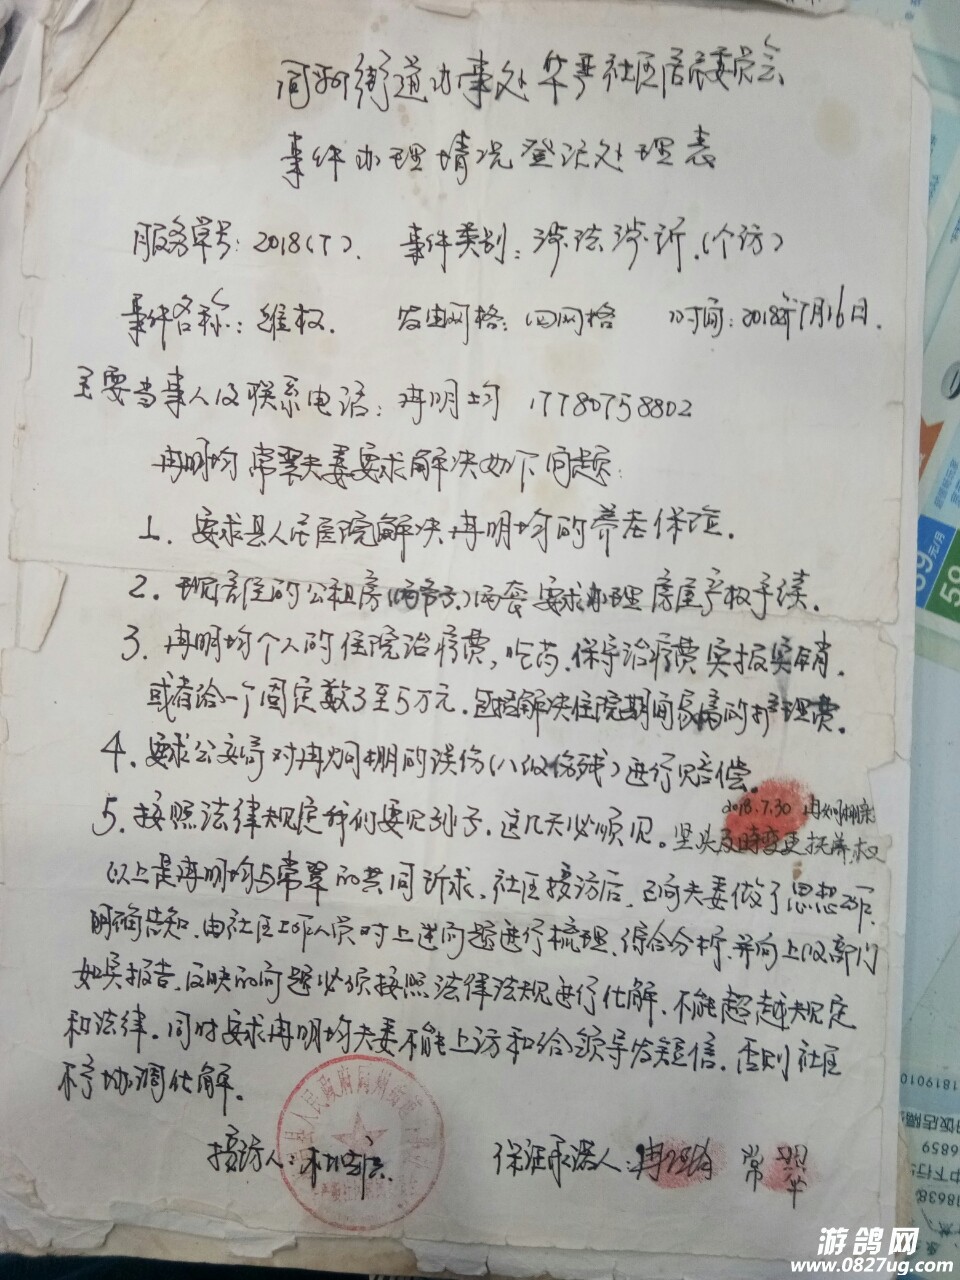 同州街道办事处华严社区居民委员会
事件办理情况登记处理表
服务单号：2018(7)． 事件类别：涉法涉诉．(个访)
事件名称：维权． 发生网格：四网格 时间：2018年7月16日．
主要当事人及联系电话：冉明均 17780758802
冉明均 常翠夫妻要求解决如下问题：
1．要求县人民医院解决冉明均的养老保险．
2．现居住的公租房(两帘子)两套要求办理房屋产权手续．
3．冉明均个人的住院治疗费，吃药．保守治疗费实报实销．
或者给一个固定数3至5万元．包括解决住院期间家属的护理费．
4．要求公安局对冉炯棚的误伤(八级伤残)进行赔偿．
2018.7.30 冉炯棚亲
5．按照法律规定我们要见孙子．这几天必须见．坚决及时变更抚养权
以上是冉明均与常翠的共同诉求．社区接访后，已向夫妻做了思想工作．
明确告知．由社区工作人员对上述问题进行梳理．综合分析．并向上级部门
如实报告．反映的问题必须按照法律法规进行化解．不能超越规定
和法律．同时要求冉明均夫妻不能上访和给领导发短信．否则社区
不予协调化解．
接访人： 保证承诺人：冉明均 常翠
县人民政府同州街道
游鸽网
www.0827ug.com
元/月
59
1819010
6859
中下行
18638